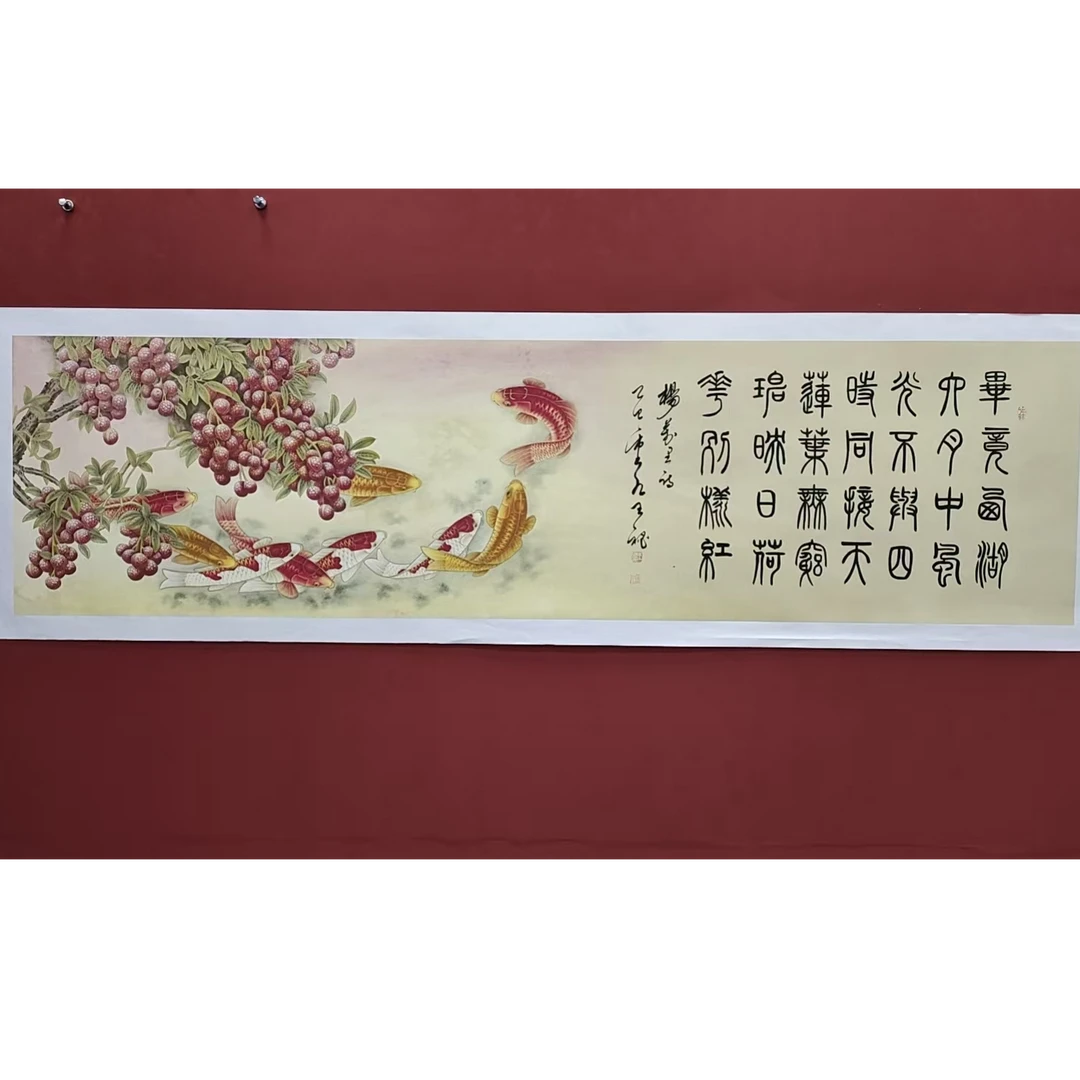 畢竟西湖
六月中風
光不與四
時同接天
蓮葉無窮
碧映日荷
花別樣紅
楊萬里詩
乙巳